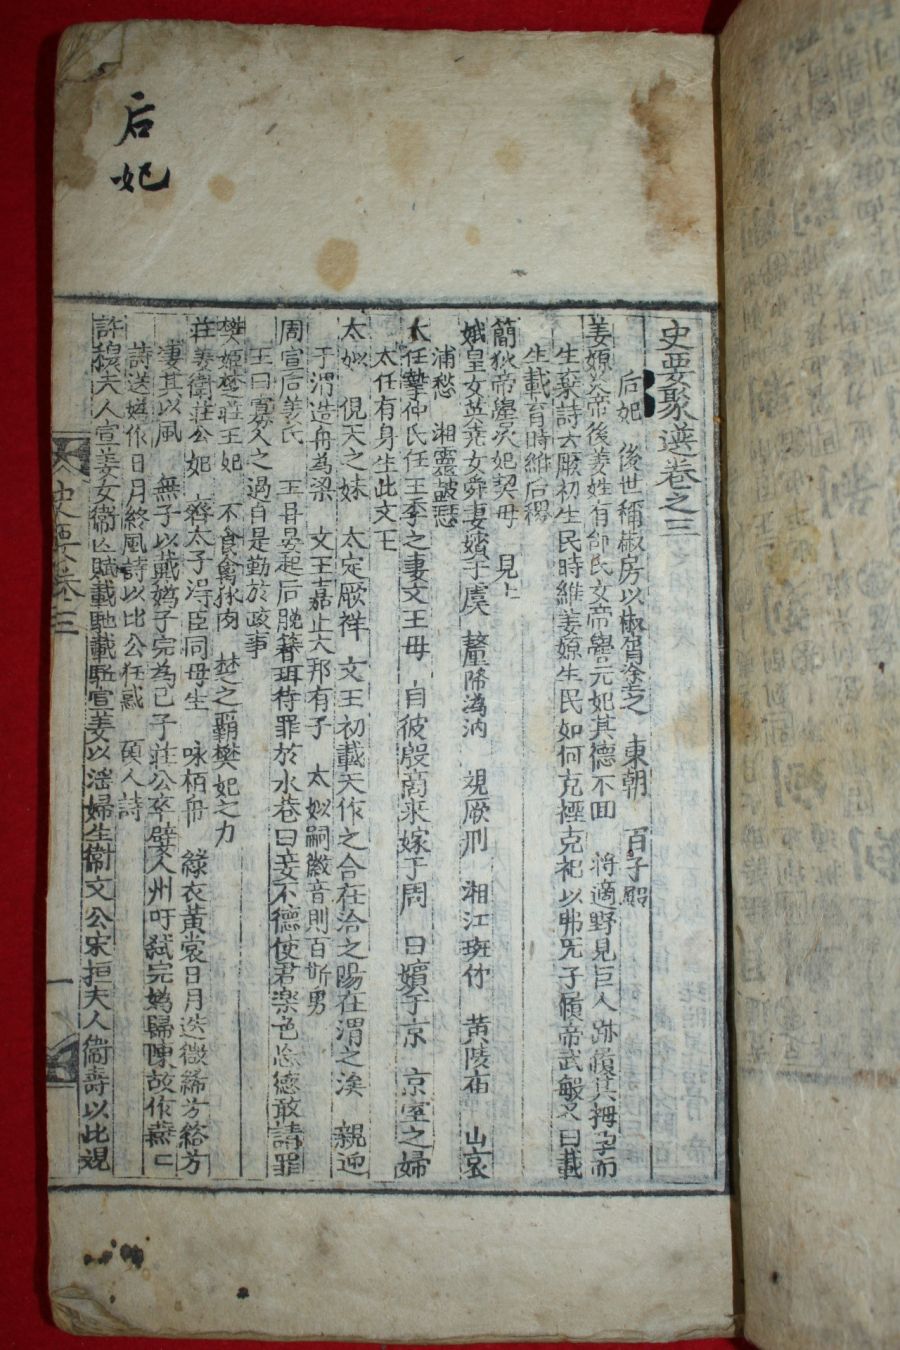 后妃
史要聚選卷之三
后妃 後世稱椒房以椒屑塗之 東朝 百子殿
姜嫄炎帝後姜姓有邰氏女帝嚳元妃其德不回 將適野見巨人跡履其拇孕而
生棄詩云厥初生民時維姜嫄生民如何克禋克祀以弗无子履帝武敏又曰載
生載育時維后稷
簡狄帝嚳次妃契母 見上
娥皇女英堯女舜妻嬪于虞 釐降溈汭 覌厥刑 湘江斑竹 黃陵 山哀
浦愁 湘靈皷瑟
太任摯仲氏任王季之妻文王母 自彼殷商来嫁于周 曰嬪于京 京室之婦
太任有身生此文王
太姒 俔天之妹 太定厥祥 文王初載天作之合在洽之陽在渭之涘 親迎
于渭造舟為梁 文王嘉止大邦有子 太姒嗣徽音則百斯男
周宣后姜氏 王甞晏起后脫簪珥待罪於永巷曰妾不德使君楽色忘德敢請罪
王曰寡人之過自是勤於政事
樊姬楚莊王妃 不食禽獸肉 楚之覇樊妃之力
莊姜衛莊公妃 齊太子淂臣同母生 咏栢舟 綠衣黃裳日月迭微絺兮綌兮
凄其以風 無子以戴媯子完為己子莊公卒嬖人州吁弑完媯歸陳故作燕燕
詩送媯作日月終風詩以比公狂惑 碩人詩
許穆夫人宣姜女衛亡賦載馳載驅宣姜以淫婦生衛文公宋桓夫人衛壽以此覌
史要卷三
一